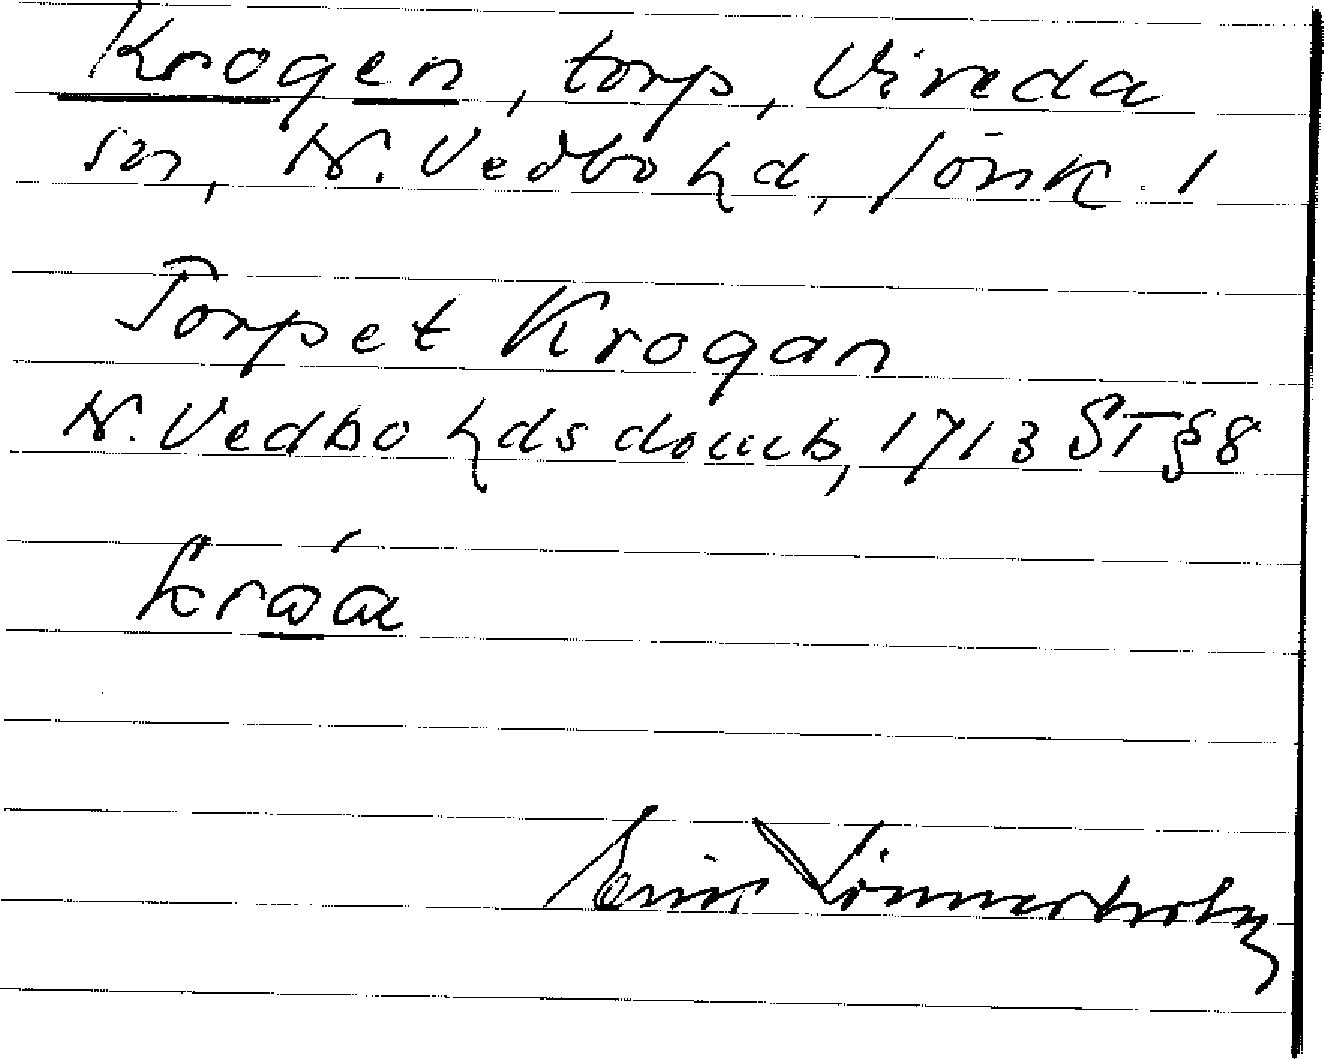 Krogen, torp, Vireda
sn, N. Vedbo hd, Jönk. l
Torpet Krogan
N. Vedbo hds domb, 1713 ST § 8
kråa